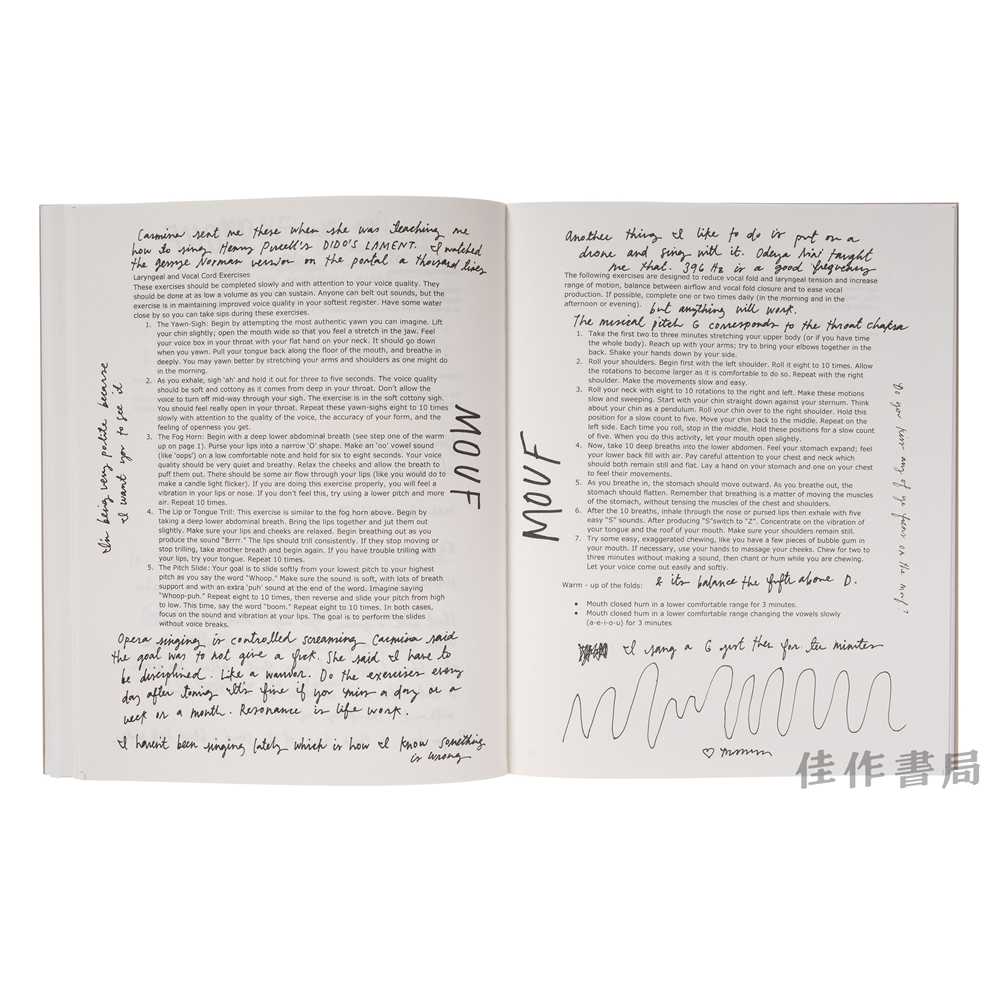 Carmina sent me these when she was teaching me
how to sing Henry Purcell's DIDO'S LAMENT. I watched
the Jessye Norman version on the portal a thousand times
Laryngeal and Vocal Cord Exercises
These exercises should be completed slowly and with attention to your voice quality. They
should be done at as low a volume as you can sustain. Anyone can belt out sounds, but the
exercise is in maintaining improved voice quality in your softest register. Have some water
close by so you can take sips during these exercises.
1. The Yawn-Sigh: Begin by attempting the most authentic yawn you can imagine. Lift
your chin slightly; open the mouth wide so that you feel a stretch in the jaw. Feel
your voice box in your throat with your flat hand on your neck. It should go down
when you yawn. Pull your tongue back along the floor of the mouth, and breathe in
deeply. You may yawn better by stretching your arms and shoulders as one might do
in the morning.
2. As you exhale, sigh 'ah' and hold it out for three to five seconds. The voice quality
should be soft and cottony as it comes from deep in your throat. Don't allow the
voice to turn off mid-way through your sigh. The exercise is in the soft cottony sigh.
You should feel really open in your throat. Repeat these yawn-sighs eight to 10 times
slowly with attention to the quality of the voice, the accuracy of your form, and the
feeling of openness you get.
3. The Fog Horn: Begin with a deep lower abdominal breath (see step one of the warm
up on page 1). Purse your lips into a narrow 'O' shape. Make an 'oo' vowel sound
(like 'oops') on a low comfortable note and hold for six to eight seconds. Your voice
quality should be very quiet and breathy. Relax the cheeks and allow the breath to
puff them out. There should be some air flow through your lips (like you would do to
make a candle light flicker). If you are doing this exercise properly, you will feel a
vibration in your lips or nose. If you don't feel this, try using a lower pitch and more
air. Repeat 10 times.
4. The Lip or Tongue Trill: This exercise is similar to the fog horn above. Begin by
taking a deep lower abdominal breath. Bring the lips together and jut them out
slightly. Make sure your lips and cheeks are relaxed. Begin breathing out as you
produce the sound "Brrr." The lips should trill consistently. If they stop moving or
stop trilling, take another breath and begin again. If you have trouble trilling with
your lips, try your tongue. Repeat 10 times.
5. The Pitch Slide: Your goal is to slide softly from your lowest pitch to your highest
pitch as you say the word "Whoop." Make sure the sound is soft, with lots of breath
support and with an extra 'puh' sound at the end of the word. Imagine saying
"Whoop-puh." Repeat eight to 10 times, then reverse and slide your pitch from high
to low. This time, say the word "boom." Repeat eight to 10 times. In both cases,
focus on the sound and vibration at your lips. The goal is to perform the slides
without voice breaks.
I'm being very polite because
I want you to see it
MOUF
Opera singing is controlled screaming Carmina said
the goal was to not give a fuck. She said I have to
be disciplined. Like a warrior. Do the exercises every
day after toning It's fine if you miss a day or a
week or a month. Resonance is life work.
I haven't been singing lately which is how I know something
is wrong
Another thing I like to do is put on a
drone and sing with it. Odeya Nini taught
me that. 396 Hz is a good frequency
The following exercises are designed to reduce vocal fold and laryngeal tension and increase
range of motion, balance between airflow and vocal fold closure and to ease vocal
production. If possible, complete one or two times daily (in the morning and in the
afternoon or evening).
but anything will work.
The musical pitch G corresponds to the throat chakra
1. Take the first two to three minutes stretching your upper body (or if you have time
the whole body). Reach up with your arms; try to bring your elbows together in the
back. Shake your hands down by your side.
2. Roll your shoulders. Begin first with the left shoulder. Roll it eight to 10 times. Allow
the rotations to become larger as it is comfortable to do so. Repeat with the right
shoulder. Make the movements slow and easy.
3. Roll your neck with eight to 10 rotations to the right and left. Make these motions
slow and sweeping. Start with your chin straight down against your sternum. Think
about your chin as a pendulum. Roll your chin over to the right shoulder. Hold this
position for a slow count to five. Move your chin back to the middle. Repeat on the
left side. Each time you roll, stop in the middle. Hold these positions for a slow count
of five. When you do this activity, let your mouth open slightly.
4. Now, take 10 deep breaths into the lower abdomen. Feel your stomach expand; feel
your lower back fill with air. Pay careful attention to your chest and neck which
should both remain still and flat. Lay a hand on your stomach and one on your chest
to feel their movements.
5. As you breathe in, the stomach should move outward. As you breathe out, the
stomach should flatten. Remember that breathing is a matter of moving the muscles
of the stomach, without tensing the muscles of the chest and shoulders.
6. After the 10 breaths, inhale through the nose or pursed lips then exhale with five
easy "S" sounds. After producing "S"switch to "Z". Concentrate on the vibration of
your tongue and the roof of your mouth. Make sure your shoulders remain still.
7. Try some easy, exaggerated chewing, like you have a few pieces of bubble gum in
your mouth. If necessary, use your hands to massage your cheeks. Chew for two to
three minutes without making a sound, then chant or hum while you are chewing.
Let your voice come out easily and softly.
MOUF
Warm - up of the folds:
& its balance the fifth above D.
• Mouth closed hum in a lower comfortable range for 3 minutes.
• Mouth closed hum in a lower comfortable range changing the vowels slowly
(a-e-i-o-u) for 3 minutes
I sang a G just then for ten minutes
佳作書局